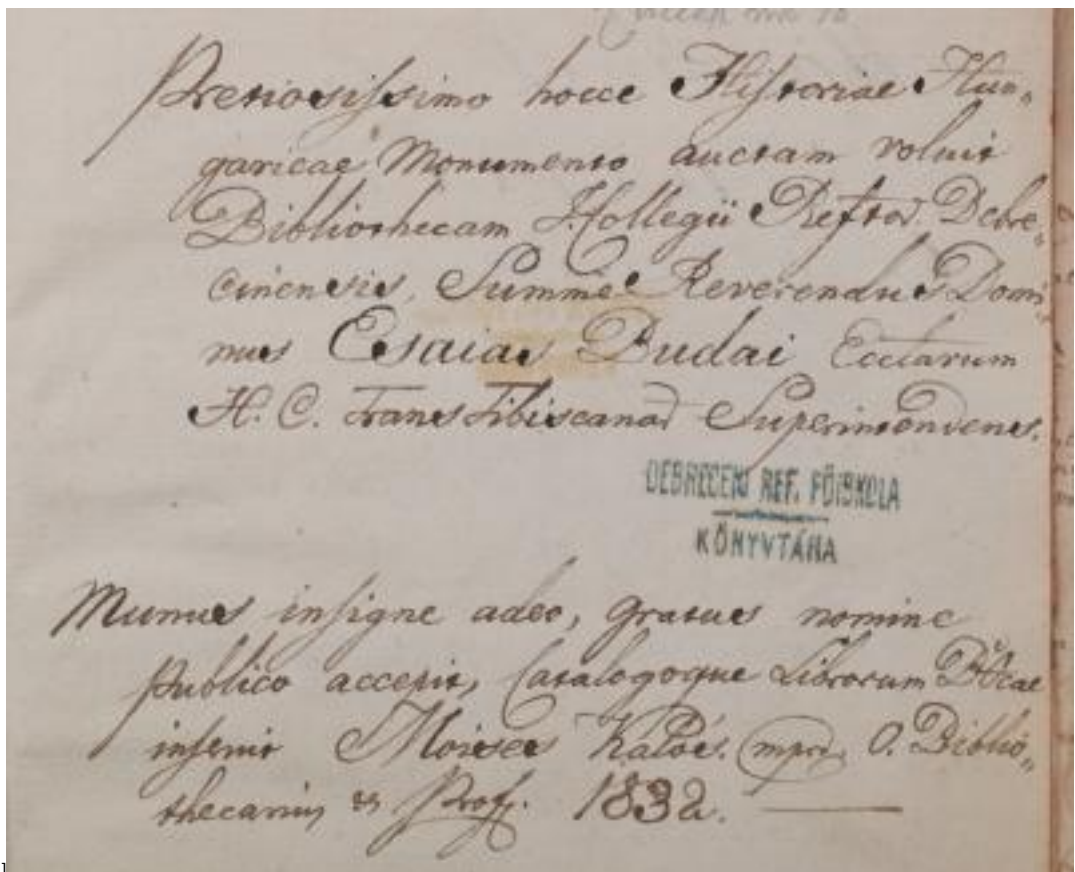 Pretiosissimo hocce Historiae Hun„
garicae Monumento auctam voluit
Bibliothecam I. Collegii Reftor. Debre„
cinensis, Summe Reverendus Domi
nus Esaias Budai Ecclarum
H. C. Trans Tibiscanar Superintendens.
DEBRECENI REF. FŐISKOLA
KÖNYVTÁRA
Munus insigne adeo, gratus nomine
publico accepit, Catalogoque Librorum Bthcae
inseruit Moises Kalós. mpr. O. Biblio„
thecarius et Prof. 1832.